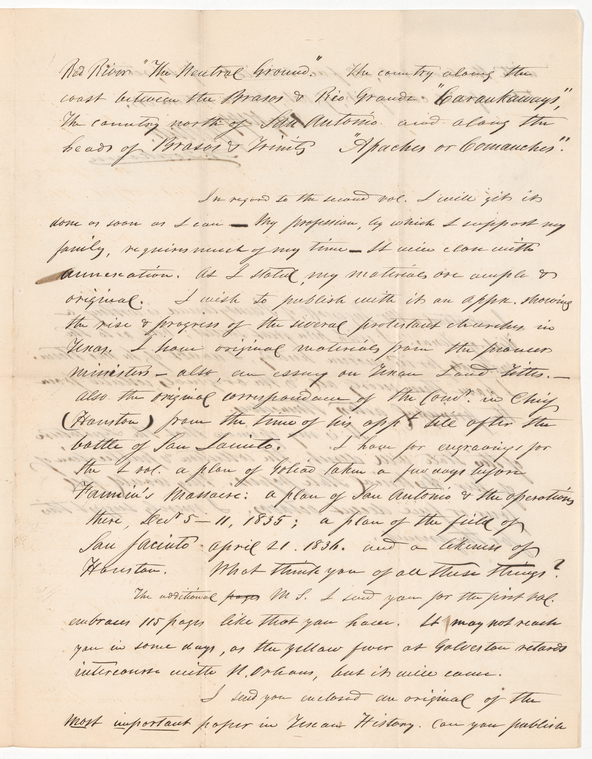 Red River "The Neutral Ground." The country along the
coast between the Brasos & Rio Grande "Carankaways,"
The country north of San Antonio and along the
heads of Brasos & Trinity "Apaches or Comanches".
In regard to the second vol. I will get it
done as soon as I can — My profession, by which I support my
family, requires much of my time — It will close with
annexation. As I stated, my materials are ample &
original. I wish to publish with it an appx. showing
the rise & progress of the several protestant churches in
Texas. I have original materials from the pioneer
ministers — also, an essay on Texan Land Titles. —
also the original correspondence of the Comr. in Chief
(Houston) from the time of his appt. till after the
battle of San Jacinto. I have for engravings for
the 1 vol. a plan of Goliad taken a few days before
Fannin's Massacre: a plan of San Antonio & the operations
there, Decr 5 – 11, 1835; a plan of the field of
San Jacinto april 21. 1836. and a likeness of
Houston. What think you of all these things?
The additional pages M S. I send you for the first vol.
embraces 115 pages like that you have. It may not reach
you in some days, as the yellow fever at Galveston retards
intercourse with N. Orleans, but it will come.
I send you enclosed an original of the
most important paper in Texan History. Can you publish